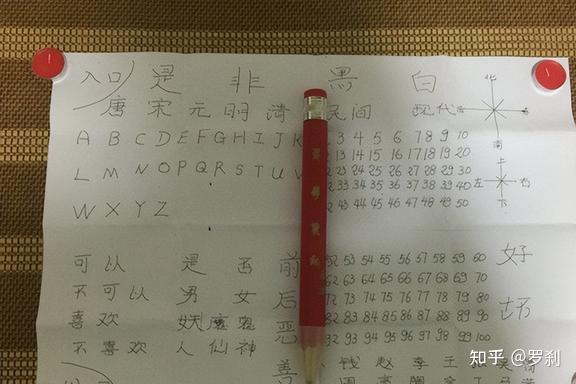 入口 是 非 黑 白
北
唐 宋 元 明 清 民间 现代
南
A B C D E F G H I J K 3 4 5 6 7 8 9 10
13 14 15 16 17 18 19 20
L M N O P Q R S T U V 23 24 25 26 27 28 29 30
上
左 右
下
33 34 35 36 37 38 39 40
W X Y Z 43 44 45 46 47 48 49 50
可以 是 否 前 52 53 54 55 56 57 58 59 60 好
62 63 64 65 66 67 68 69 70
不可以 男 女 后 72 73 74 75 76 77 78 79 80 坏
喜欢 妖 魔 鬼 恶 82 83 84 85 86 87 88 89 90
不喜欢 人 仙 神 92 93 94 95 96 97 98 99 100
善 钱 赵 李 王 张
知乎 @罗刹